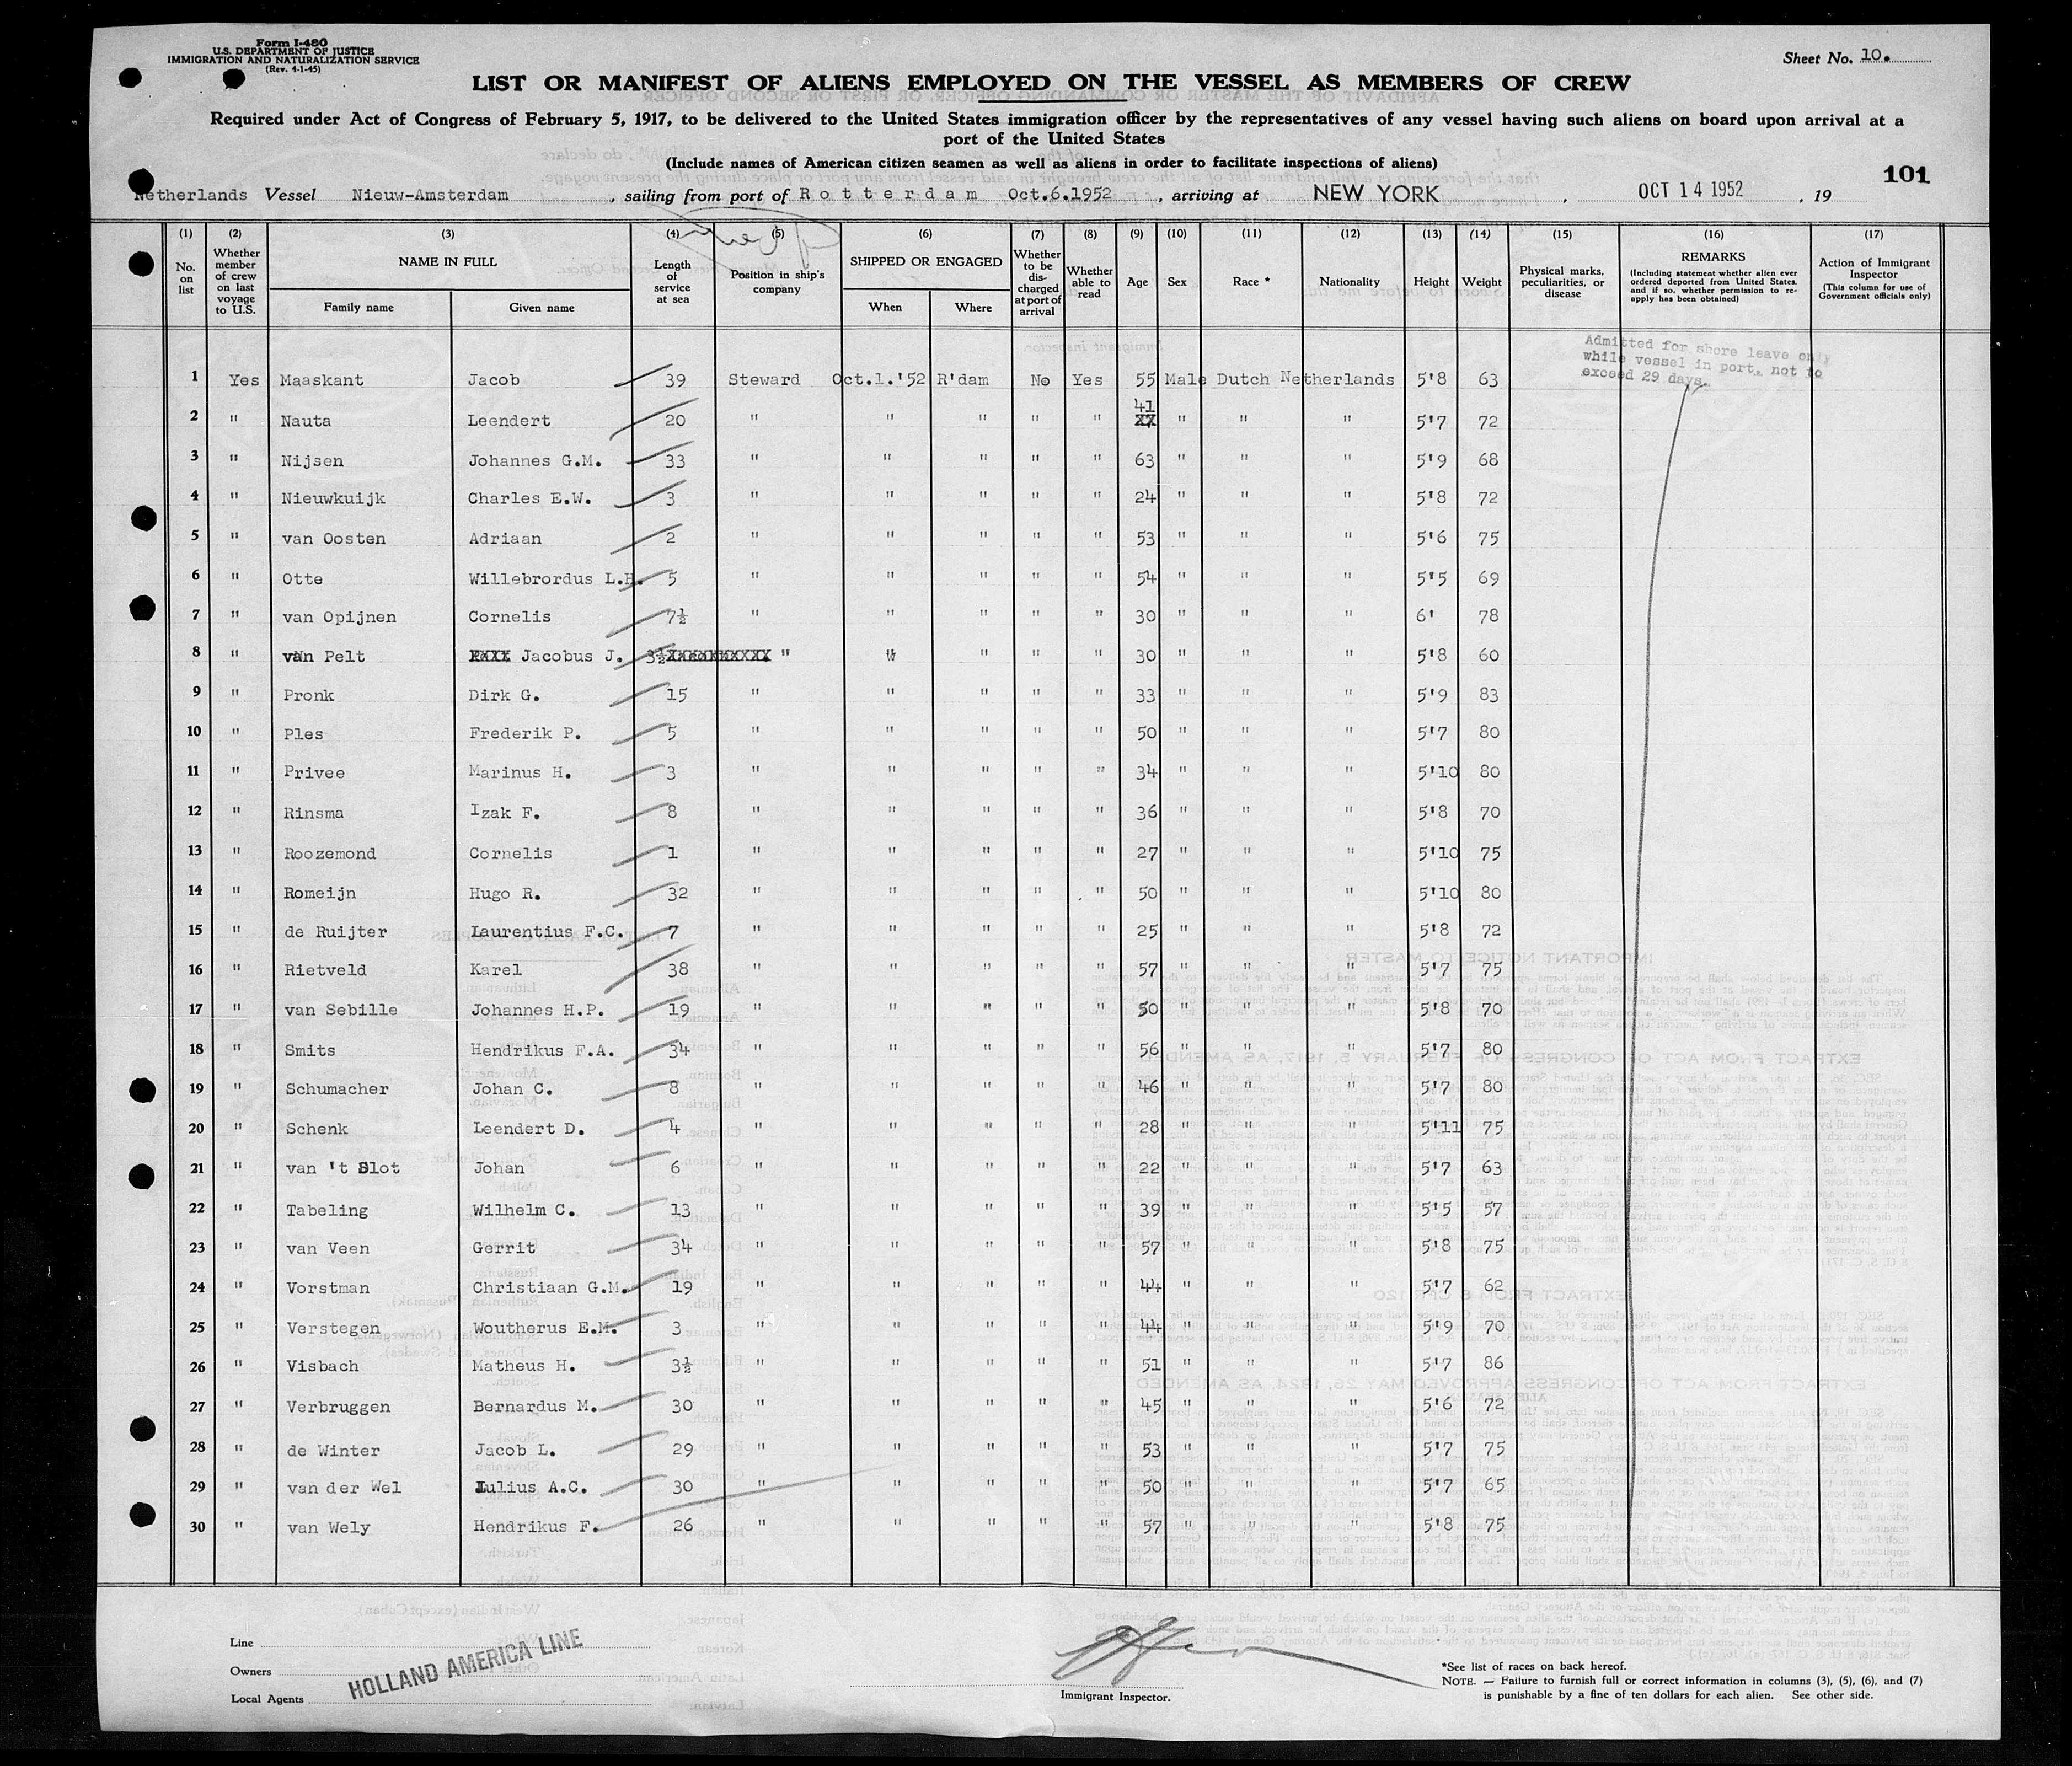 Form I-480
U.S. DEPARTMENT OF JUSTICE
IMMIGRATION AND NATURALIZATION SERVICE
(Rev. 4-1-45)
Sheet No. 10.
LIST OR MANIFEST OF ALIENS EMPLOYED ON THE VESSEL AS MEMBERS OF CREW
Required under Act of Congress of February 5, 1917, to be delivered to the United States immigration officer by the representatives of any vessel having such aliens on board upon arrival at a
port of the United States
(Include names of American citizen seamen as well as aliens in order to facilitate inspections of aliens)
101
Netherlands Vessel Nieuw-Amsterdam, sailing from port of Rotterdam Oct.6.1952, arriving at NEW YORK, OCT 14 1952, 19
(1) (2) (3) (4) (5) (6) (7) (8) (9) (10) (11) (12) (13) (14) (15) (16) (17)
No. on list
Whether member of crew on last voyage to U.S.
NAME IN FULL
Family name
Given name
Length of service at sea
Position in ship's company
SHIPPED OR ENGAGED
When
Where
Whether to be discharged at port of arrival
Whether able to read
Age
Sex
Race *
Nationality
Height
Weight
Physical marks, peculiarities, or disease
REMARKS
(Including statement whether alien ever ordered deported from United States, and if so, whether permission to reapply has been obtained)
Action of Immigrant Inspector
(This column for use of Government officials only)
Admitted for shore leave only
while vessel in port, not to
exceed 29 days.
1 Yes Maaskant Jacob 39 Steward Oct.1.'52 R'dam No Yes 55 Male Dutch Netherlands 5'8 63
2 " Nauta Leendert 20 " " " " " 41 " " " 5'7 72
3 " Nijsen Johannes G.M. 33 " " " " " 63 " " " 5'9 68
4 " Nieuwkuijk Charles E.W. 3 " " " " " 24 " " " 5'8 72
5 " van Oosten Adriaan 2 " " " " " 53 " " " 5'6 75
6 " Otte Willebrordus L.H. 5 " " " " " 54 " " " 5'5 69
7 " van Opijnen Cornelis 7½ " " " " " 30 " " " 6' 78
8 " van Pelt Jacobus J. 3½ " " " " " 30 " " " 5'8 60
9 " Pronk Dirk G. 15 " " " " " 33 " " " 5'9 83
10 " Ples Frederik P. 5 " " " " " 50 " " " 5'7 80
11 " Privee Marinus H. 3 " " " " " 34 " " " 5'10 80
12 " Rinsma Izak F. 8 " " " " " 36 " " " 5'8 70
13 " Roozemond Cornelis 1 " " " " " 27 " " " 5'10 75
14 " Romeijn Hugo R. 32 " " " " " 50 " " " 5'10 80
15 " de Ruijter Laurentius F.C. 7 " " " " " 25 " " " 5'8 72
16 " Rietveld Karel 38 " " " " " 57 " " " 5'7 75
17 " van Sebille Johannes H.P. 19 " " " " " 50 " " " 5'8 70
18 " Smits Hendrikus F.A. 34 " " " " " 56 " " " 5'7 80
19 " Schumacher Johan C. 8 " " " " " 46 " " " 5'7 80
20 " Schenk Leendert D. 4 " " " " " 28 " " " 5'11 75
21 " van 't Slot Johan 6 " " " " " 22 " " " 5'7 63
22 " Tabeling Wilhelm C. 13 " " " " " 39 " " " 5'5 57
23 " van Veen Gerrit 34 " " " " " 57 " " " 5'8 75
24 " Vorstman Christiaan G.M. 19 " " " " " 44 " " " 5'7 62
25 " Verstegen Woutherus E.M. 3 " " " " " 44 " " " 5'9 70
26 " Visbach Matheus H. 3½ " " " " " 51 " " " 5'7 86
27 " Verbruggen Bernardus M. 30 " " " " " 45 " " " 5'6 72
28 " de Winter Jacob L. 29 " " " " " 53 " " " 5'7 75
29 " van der Wel Julius A.C. 30 " " " " " 50 " " " 5'7 65
30 " van Wely Hendrikus F. 26 " " " " " 57 " " " 5'8 75
Line
Owners
Local Agents
HOLLAND AMERICA LINE
Immigrant Inspector.
*See list of races on back hereof.
NOTE. — Failure to furnish full or correct information in columns (3), (5), (6), and (7)
is punishable by a fine of ten dollars for each alien. See other side.